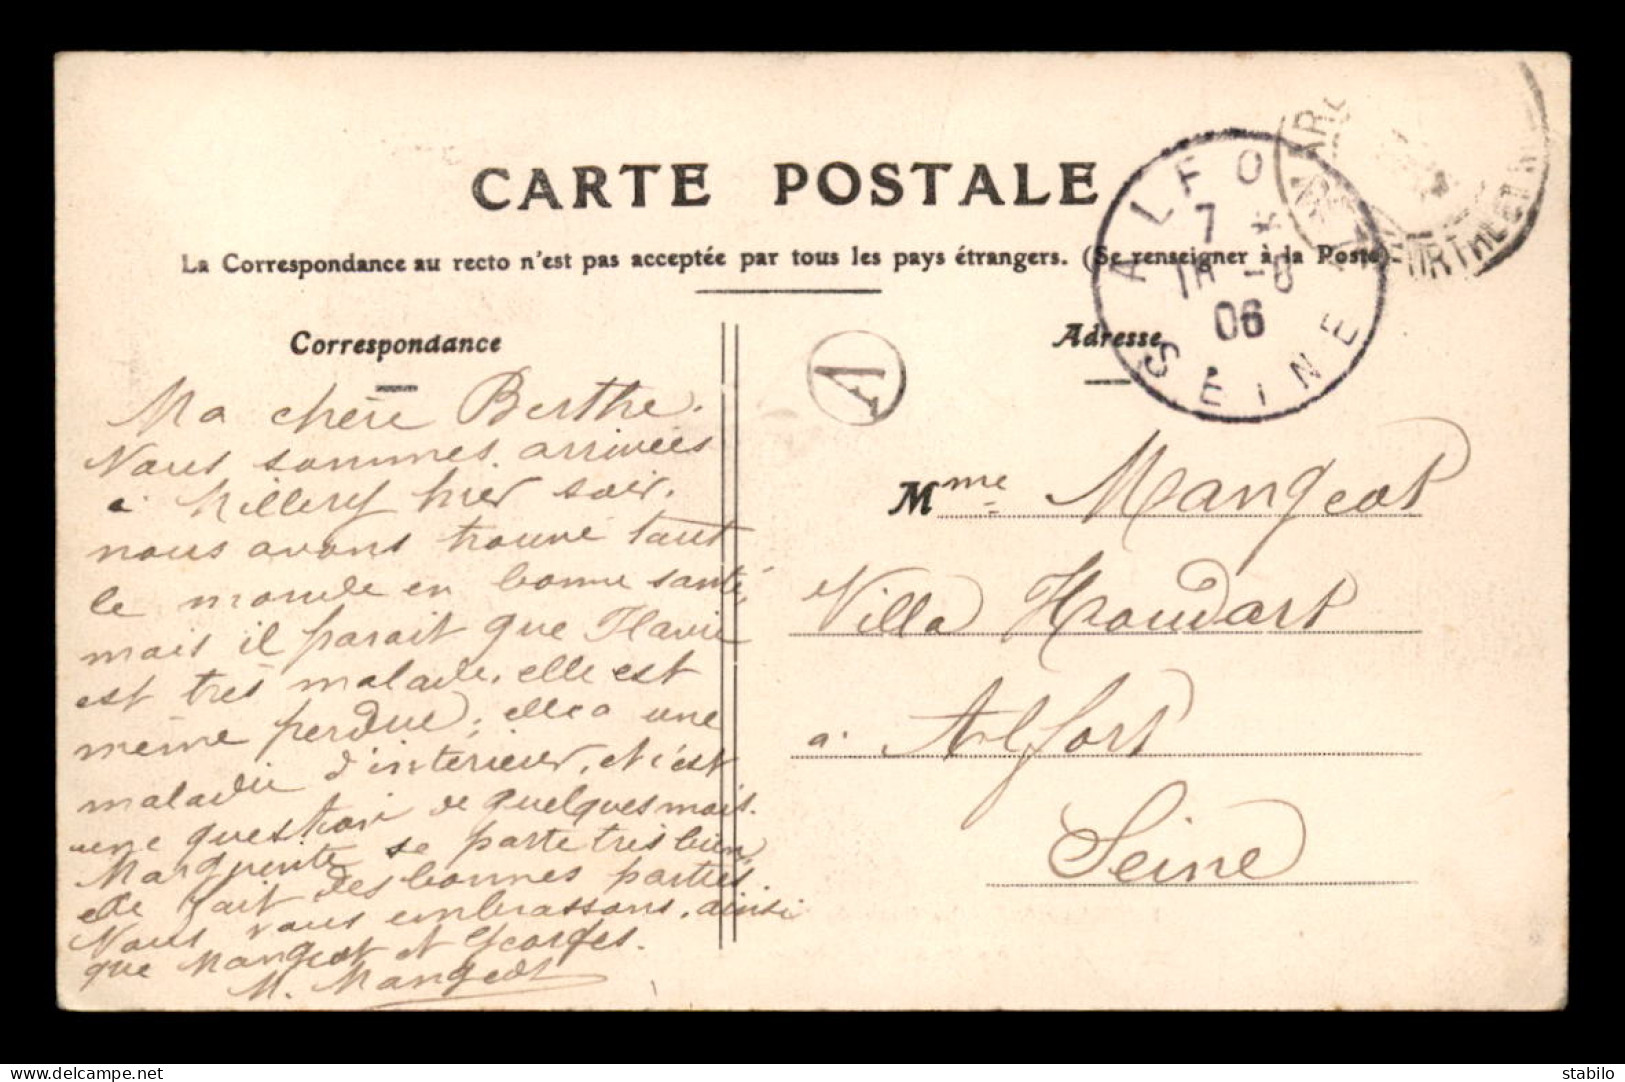 CARTE POSTALE
La Correspondance au recto n'est pas acceptée par tous les pays étrangers. (Se renseigner à la Poste)
Correspondance
Ma chère Berthe.
Nous sommes arrivées
à Millery hier soir.
nous avons trouvé tout
le monde en bonne santé,
mais il parait que Flavie
est très malade, elle est
même perdue, elle a une
maladie d'intérieur, et c'est
une question de quelques mois.
Marguerite se porte très bien,
elle fait des bonnes parties
Nous vous embrassons, ainsi
que Mangeot et Georges.
M. Mangeot
A
Adresse
ALFORT
7 *
16 -8
06
SEINE
Mme Mangeot
Villa Houdart
à Alfort
Seine